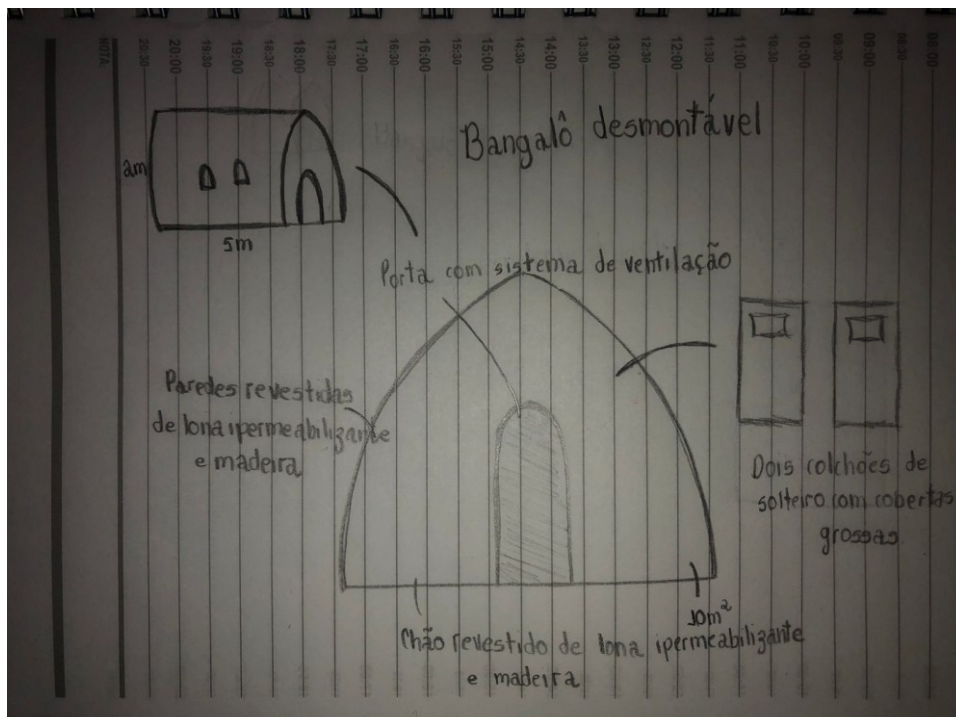 NOTA
20:30
20:00
19:30
19:00
18:30
18:00
17:30
17:00
16:30
16:00
15:30
15:00
14:30
14:00
13:30
13:00
12:30
12:00
11:30
11:00
10:30
10:00
09:30
09:00
08:30
08:00
Bangalô desmontável
2m
5m
Porta com sistema de ventilação
Paredes revestidas
de lona ipermeabilizante
e madeira
Dois colchões de
solteiro com cobertas
grossas
10m²
Chão revestido de lona ipermeabilizante
e madeira